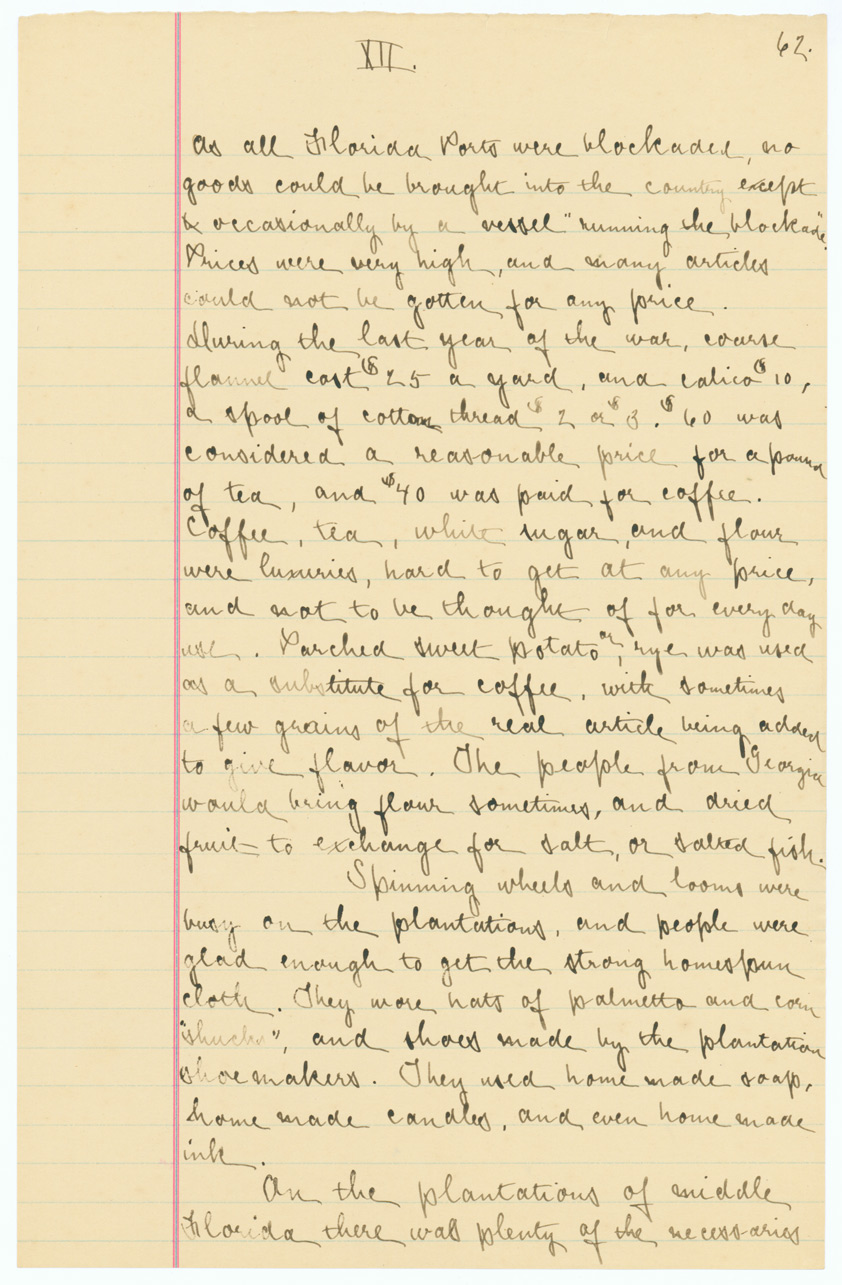 XII.
62.
As all Florida Ports were blockaded, no
goods could be brought into the country except
occasionally by a vessel "running the blockade".
Prices were very high, and many articles
could not be gotten for any price.
During the last year of the war, coarse
flannel cost $25 a yard, and calico $10,
a spool of cotton thread $2 or $3. $60 was
considered a reasonable price for a pound
of tea, and $40 was paid for coffee.
Coffee, tea, white sugar, and flour
were luxuries, hard to get at any price,
and not to be thought of for every day
use. Parched sweet potato or, rye was used
as a substitute for coffee, with sometimes
a few grains of the real article being added
to give flavor. The people from Georgia
would bring flour sometimes, and dried
fruit to exchange for salt, or salted fish.
Spinning wheels and looms were
busy on the plantations, and people were
glad enough to get the strong homespun
cloth. They wore hats of palmetto and corn
"shucks", and shoes made by the plantation
shoemakers. They used home made soap,
home made candles, and even home made
ink.
On the plantations of middle
Florida there was plenty of the necessaries